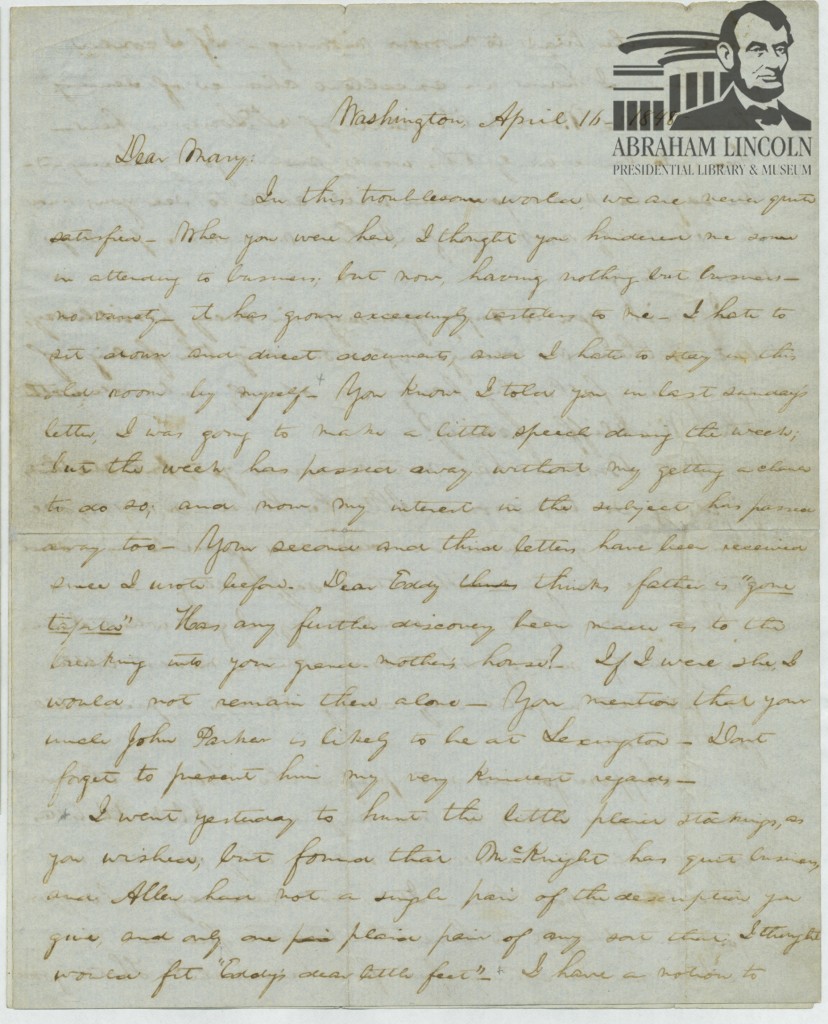 ABRAHAM LINCOLN
PRESIDENTIAL LIBRARY & MUSEUM
Washington, April 16- 1848-
Dear Mary:
In this troublesome world, we are never quite
satisfied- When you were here, I thought you hindered me some
in attending to business; but now, having nothing but business-
no variety- it has grown exceedingly tasteless to me- I hate to
sit down and direct documents, and I hate to stay in this
old room by myself- You know I told you in last sunday's
letter, I was going to make a little speech during the week;
but the week has passed away without my getting a chance
to do so; and now my interest in the subject has passed
away too- Your second and third letters have been received
since I wrote before. Dear Eddy thinks father is "gone
tapila" Has any further discovery been made as to the
breaking into your grand-mother's house? If I were she, I
would not remain there alone- You mention that your
uncle John Parker is likely to be at Lexington- Dont
forget to present him my very kindest regards-
I went yesterday to hunt the little plaid stockings, as
you wished; but found that McKnight has quit business,
and Allen had not a single pair of the description you
give, and only one plaid pair of any sort that I thought
would fit "Eddy's dear little feet"- I have a notion to